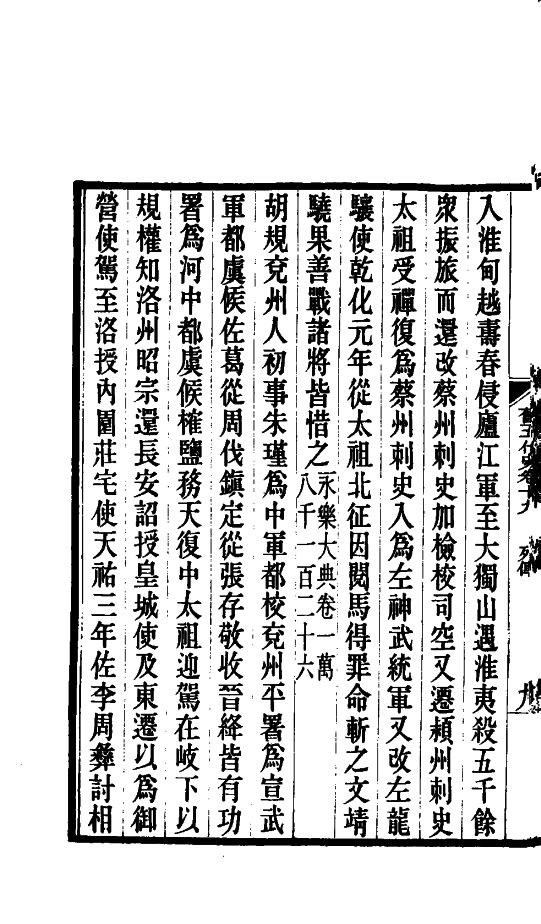 入淮甸越壽春侵廬江軍至大獨山遇淮夷殺五千餘
衆振旅而還改蔡州刺史加檢校司空又遷潁州刺史
太祖受禪復爲蔡州刺史入爲左神武統軍又改左龍
驤使乾化元年從太祖北征因閱馬得罪命斬之文靖
驍果善戰諸將皆惜之永樂大典卷一萬
八千一百二十六
胡規兗州人初事朱瑾爲中軍都校兗州平署爲宣武
軍都虞候佐葛從周伐鎮定從張存敬收晉絳皆有功
署爲河中都虞候榷鹽務天復中太祖迎駕在岐下以
規權知洛州昭宗還長安詔授皇城使及東遷以爲御
營使駕至洛授內園莊宅使天祐三年佐李周彝討相